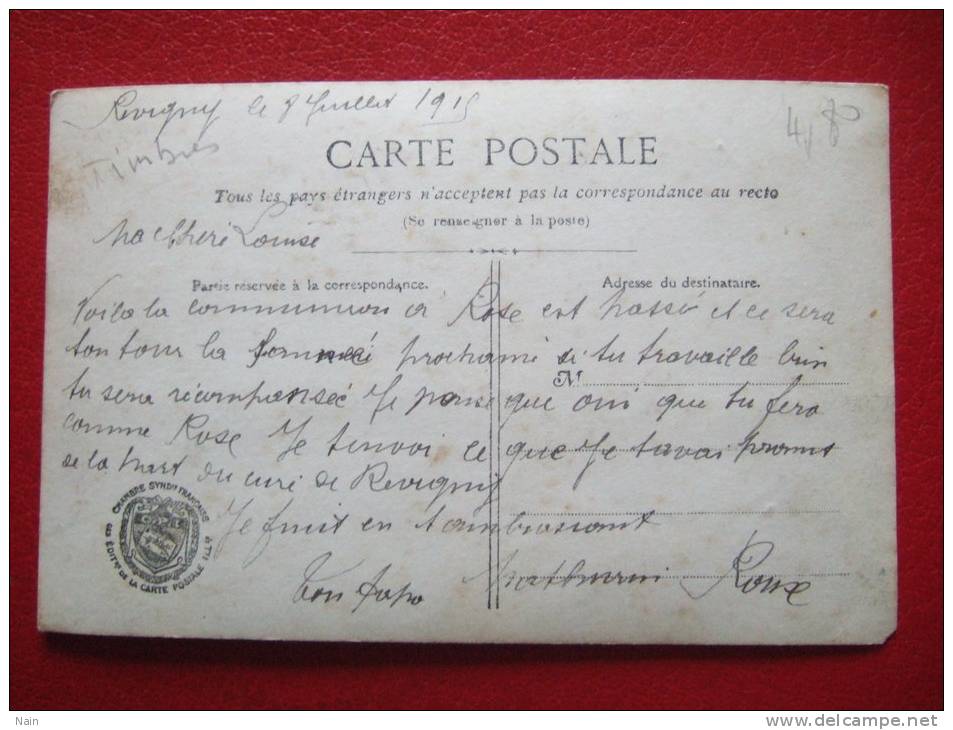 Revigny le 8 Juillet 1915
4,80
Timbres
CARTE POSTALE
Tous les pays étrangers n'acceptent pas la correspondance au recto
(Se renseigner à la poste)
Ma Chère Louise
Partie réservée à la correspondance.
Adresse du destinataire.
Voila la communion a Rose est passé et ce sera
ton tour la prochaine si tu travaille bien
M
tu sera récompensée Je pense que oui que tu fera
comme Rose Je tenvoi ce que Je tavai promit
de la part du curé de Revigny
CHAMBRE SYNDle FRANÇAISE
DES ÉDITrs DE LA CARTE POSTALE ILLée
Je finit en tembrassant
Ton papa Roux
Nain
www.delcampe.net